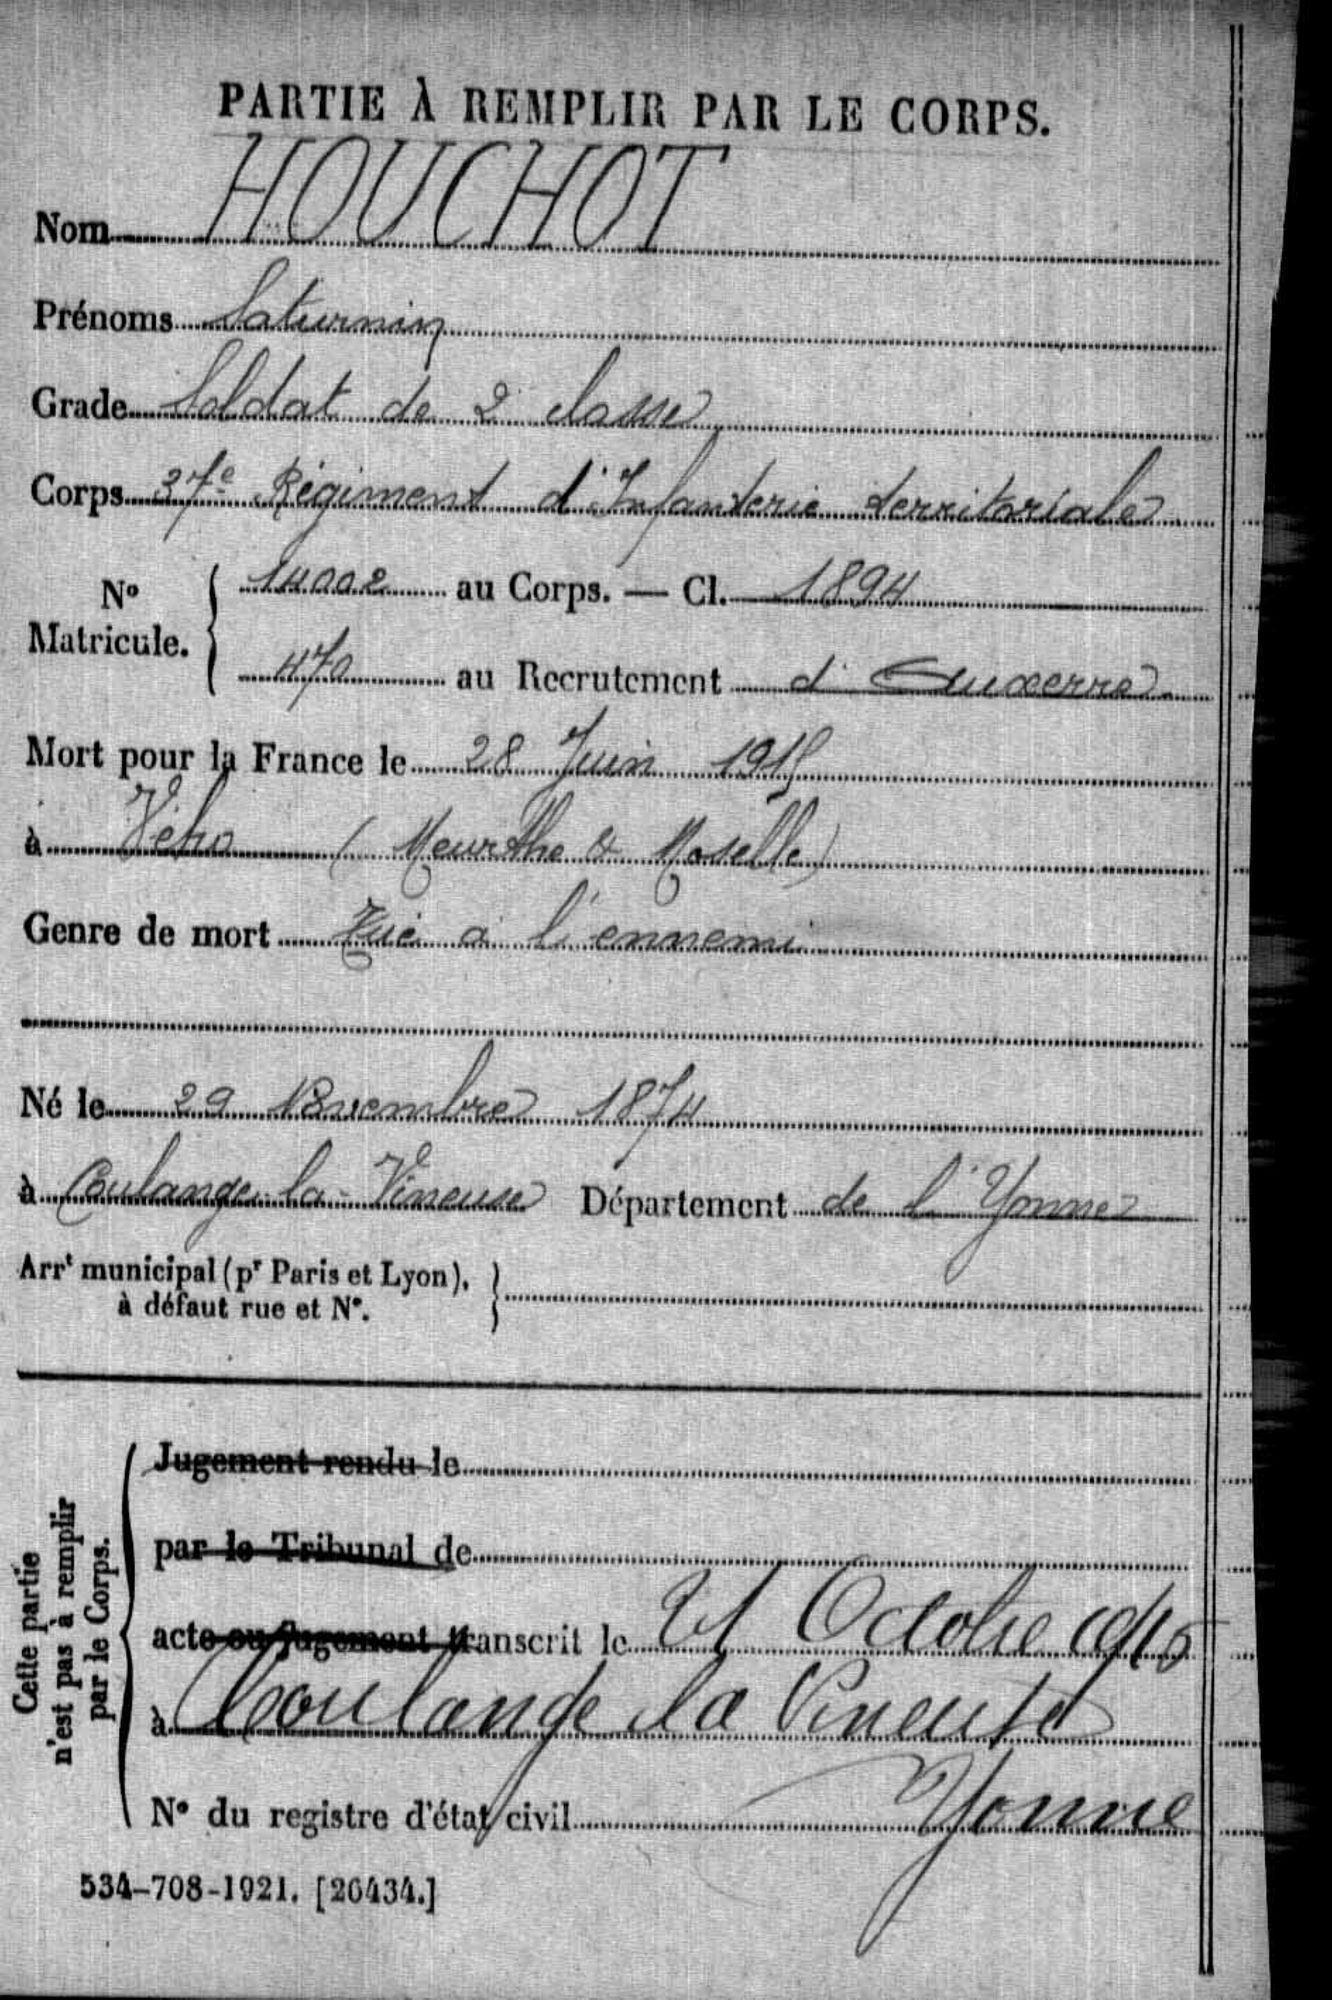 PARTIE À REMPLIR PAR LE CORPS.
Nom HOUCHOT
Prénoms Saturnin
Grade Soldat de 2 classe
Corps 37e Régiment d'Infanterie territoriale
No Matricule. 14002 au Corps. — Cl. 1894
470 au Recrutement d'Auxerre
Mort pour la France le 28 Juin 1915
à Vého (Meurthe & Moselle)
Genre de mort Tué à l'ennemi
Né le 29 Novembre 1874
à Coulange-la-Vineuse Département de l'Yonne
Arrt municipal (pr Paris et Lyon), à défaut rue et No.
Cette partie n'est pas à remplir par le Corps.
Jugement rendu le
par le Tribunal de
acte ou jugement transcrit le 21 Octobre 1915
à Coulange la Vineuse
Yonne
No du registre d'état civil
534-708-1921. [26434.]